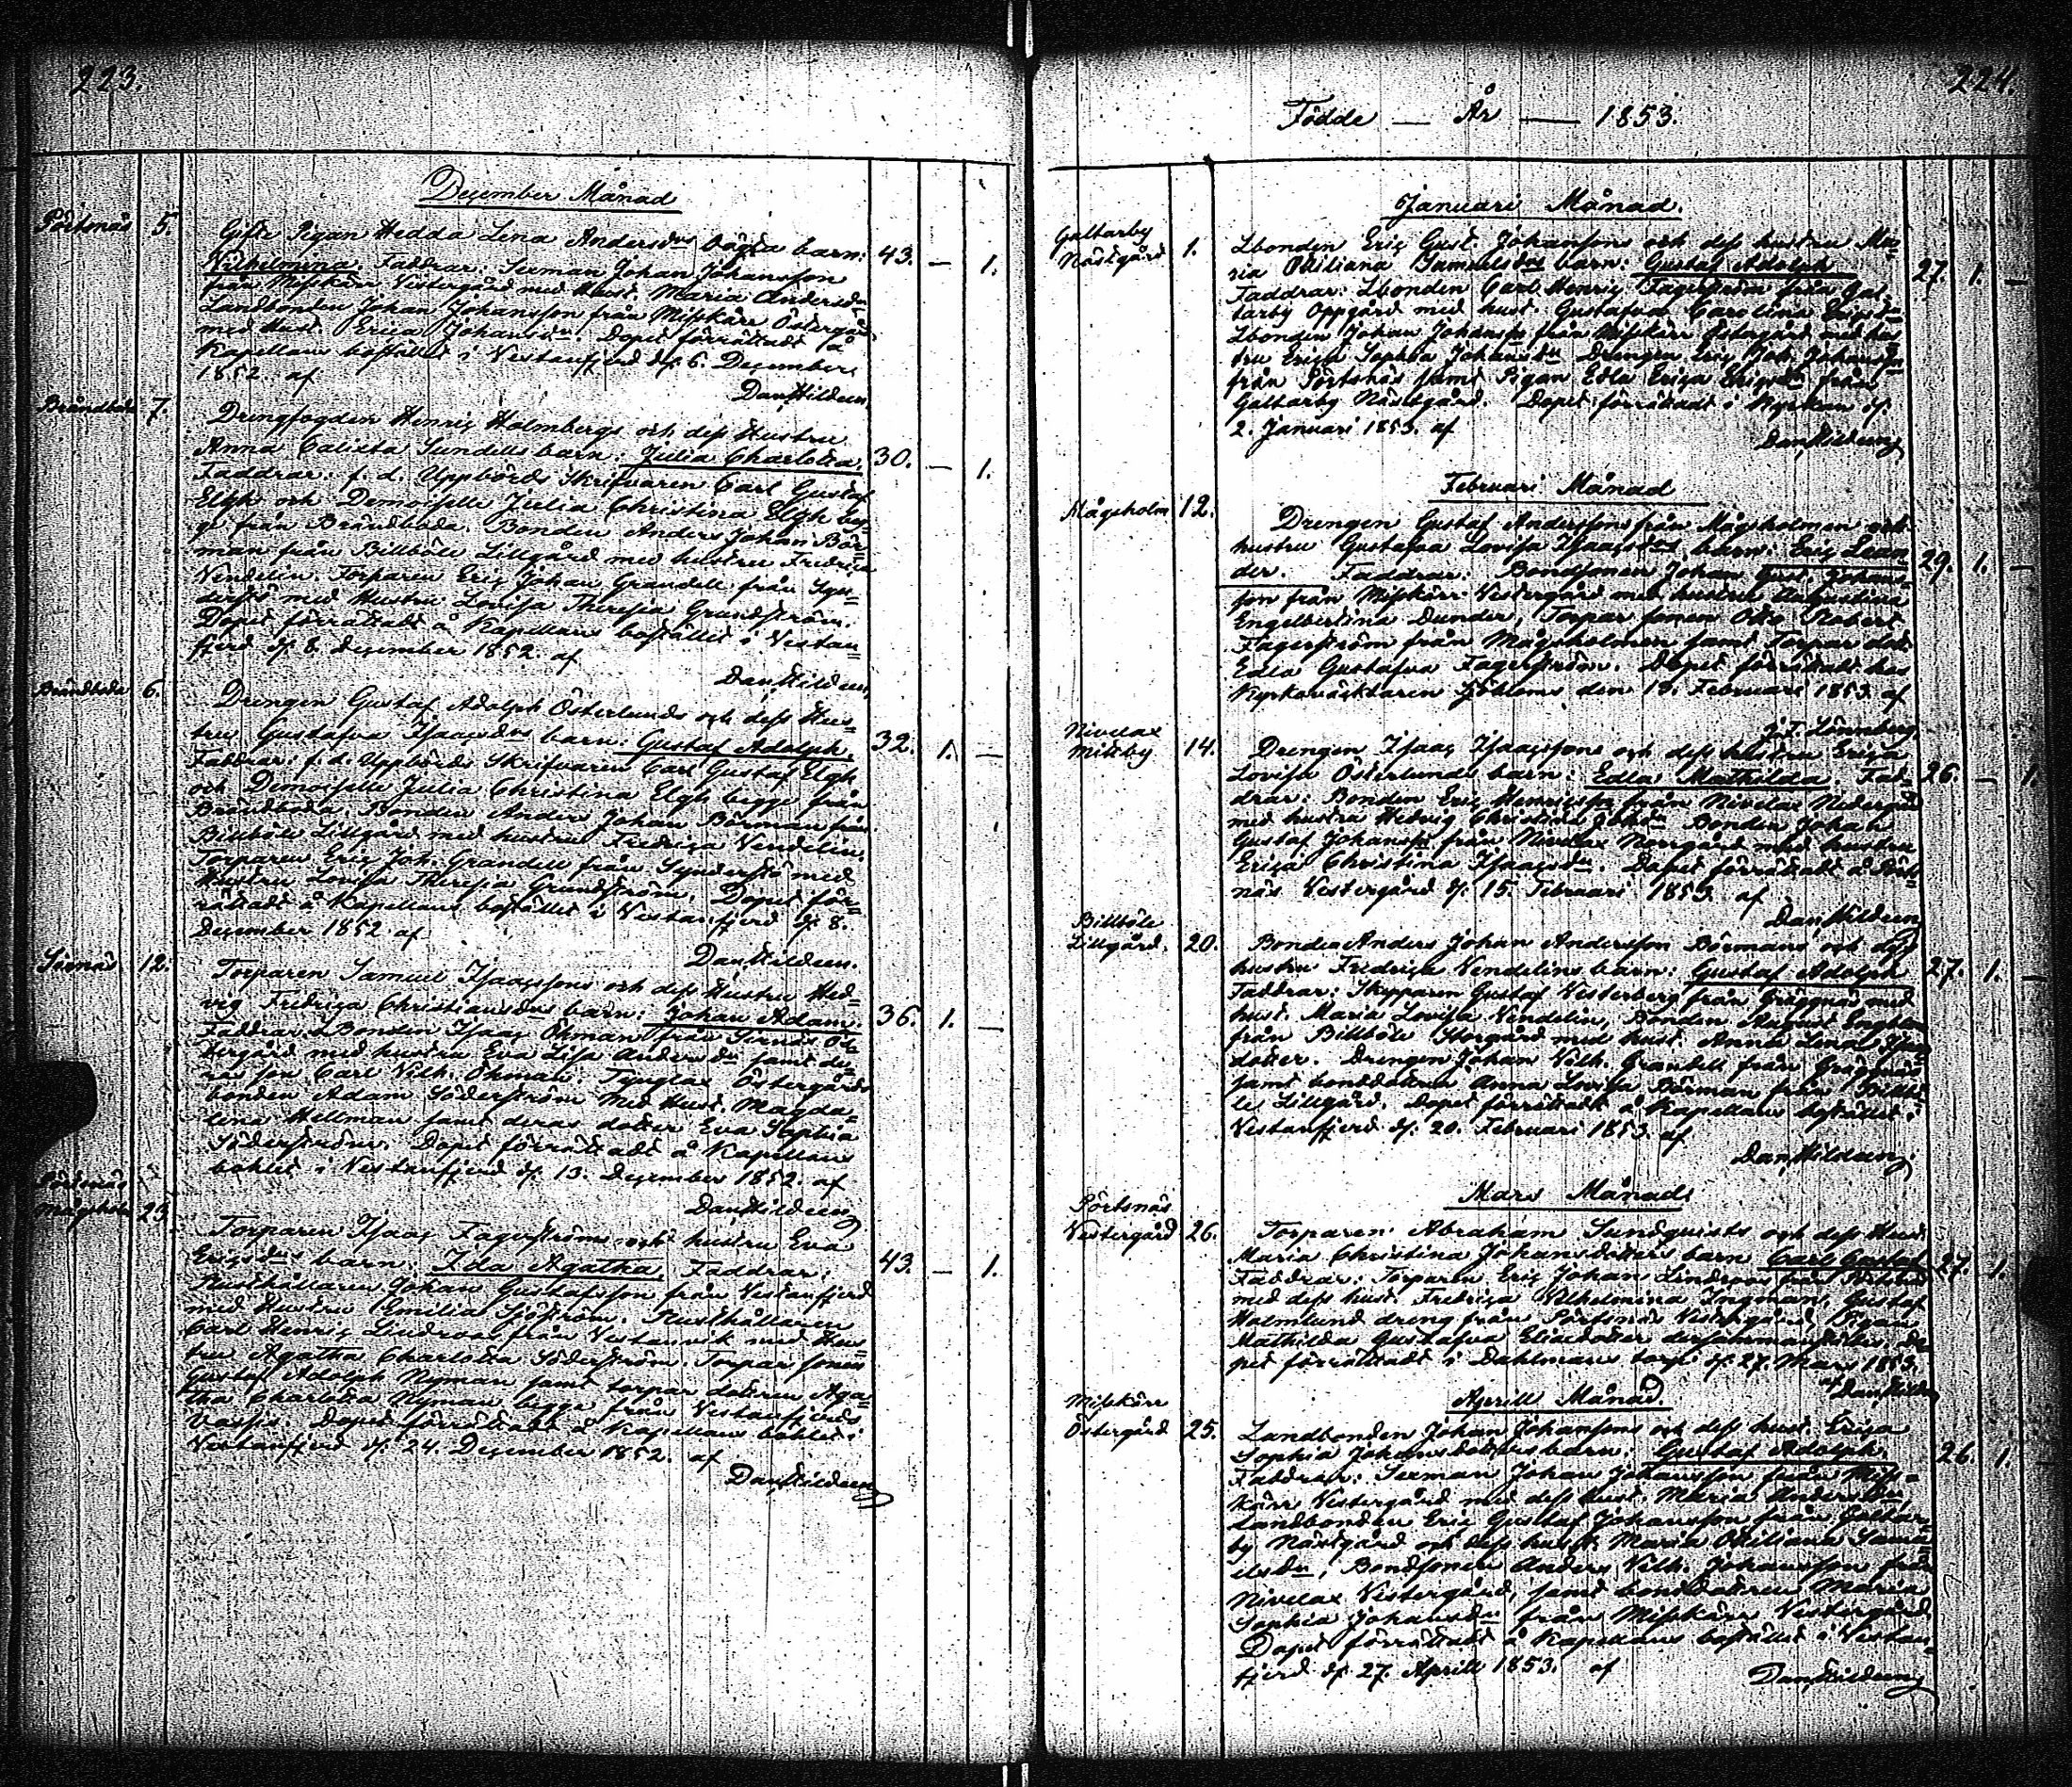 223.
December Månad
Pörtsnäs 5. Gifte Pigan Hedda Lena Andersdrs oägta barn:
Wilhelmina. Faddrar: Sexman Johan Johansson 43. — 1.
från Misskärr Vestergård med Hust. Maria Andersdr
Landbonden Johan Johansson från Misskärr Östergård
med Hust. Erica Johansdr. Dopet förrättadt å
Kapellans bostället i Vestanfjerd d. 6. December
1852. af
Dan. Hildeen.
Brändboda 7. Drengfogden Henric Holmbergs och dess Hustru
Anna Calixta Sundells barn: Julia Charlotta. 30. — 1.
Faddrar: f. d. Uppbörds Skrifvaren Carl Gustaf
Elgh och Demoiselle Julia Christina Elgh beg-
ge från Brändboda. Bonden Anders Johan Bör-
man från Billböle Lillgård med hustru Fredrica
Vendelin. Torparen Eric Johan Grandell från Syn-
derstö med Hustru Lovisa Theresia Grundström.
Dopet förrättadt å Kapellans bostället i Vestan-
fjerd d. 8. December 1852. af
Dan. Hildeen.
Brändboda 6. Drengen Gustaf Adolph Österlunds och dess Hus-
tru Gustafva Isaacsdrs barn: Gustaf Adolph. 32. 1. —
Faddrar: f. d. Uppbörds Skrifvaren Carl Gustaf Elgh
och Demoiselle Julia Christina Elgh begge från
Brändboda. Bonden Anders Johan Börman från
Billböle Lillgård med hustru Fredrica Vendelin.
Torparen Eric Joh. Grandell från Synderstö med
Hustru Lovisa Theresia Grundström. Dopet för-
rättadt å Kapellans bostället i Vestanfjerd d. 8.
December 1852 af
Dan. Hildeen.
Sirnäs 12. Torparen Samuel Isaacssons och dess Hustru Hed-
vig Fredrica Christiansdrs barn: Johan Adam. 36. 1. —
Faddrar: Bonden Isaac Öhman från Sirnäs Ös-
tergård med hustru Eva Lisa Andersdr samt de-
ras son Carl Vilh. Öhman. Tynglax Östergårds
bonden Adam Söderström med Hust. Magda-
lena Hellman samt deras dotter Eva Sophia
Söderström. Dopet förrättadt å Kapellans
bohlet i Vestanfjerd d. 13. December 1852. af
Dan. Hildeen
Pörtsnäs
Mågsholm 23. Torparen Isaac Fagerströms och hustru Eva
Ericsdrs barn: Ida Agatha. Faddrar: 43. — 1.
Rusthållaren Johan Gustafsson från Vestanfjerd
med Hustru Emilia Sjöström. Rusthållaren
Carl Henric Lindroos från Vestanvik med Hus-
tru Agatha Charlotta Söderström. Torpar sonen
Gustaf Adolph Nyman samt torpar dottren Aga-
tha Charlotta Nyman begge från Vestanfjerds
Dopet förrättadt å Kapellans bohlet i
Vestanfjerd d. 24. December 1852. af
Dan. Hildeen
224.
Födde — År — 1853.
Januari Månad.
Galtarby
Nästgård 1. Lbonden Eric Gust. Johanssons och dess hustru Ma-
ria Otiliana Samuelsdrs barn: Gustaf Adolph 27. 1. —
Faddrar: Lbonden Carl Henric Fagerström från Gal-
tarby Oppgård med hust. Gustafva Carolina Ericsdr
Lbonden Johan Johansson från Misskärr Östergård med hus-
tru Erica Sophia Johansdr Drengen Eric Joh. Johansson
från Pörtsnäs samt Pigan Edla Erica Ericsdr från
Galtarby Nästgård. Dopet förrättadt i Kyrkan d.
2. Januari 1853. af
Dan. Hildeen
Februari Månad
Mågsholm 12. Drengen Gustaf Anderssons från Mågsholmen och
hustru Gustafva Lovisa Isaacsdrs barn: Eric Lean-
der. Faddrar: Bondsonen Johan Gust. Johans- 29. 1. —
son från Misskärr Vestergård med hustru Augustina
Engelbertina Dunder, Torpar sonen Otto Robert
Fagerström från Mågsholmen samt Torpar dotr
Edla Gustafva Fagerström. Dopet förrättadt hos
Kyrkoväktaren Sjöbloms den 13. Februari 1853. af
J. F. Lönnberg
Nivelax
Mittby 14. Drengen Isaac Isaacssons och dess hustru Erica
Lovisa Österlunds barn: Edla Mathilda. Fad- 26. — 1.
drar: Bonden Eric Henricsson från Nivelax Nedergård
med hustru Hedvig Christina Johdr Bonden Johan
Gustaf Johansson från Nivelax Norrgård med hustru
Erica Christina Isaacsdr. Dopet förrättadt å Pörts-
näs Vestergård d. 15. Februari 1853. af
Dan. Hildeen
Billböle
Lillgård. 20. Bonden Anders Johan Andersson Börmans och dess
hustru Fredrica Vendelins barn: Gustaf Adolph 27. 1. —
Faddrar: Skepparen Gustaf Vesterberg från Gräggnäs med
hust. Maria Lovisa Vendelin, Bonden August
från Billböle Storgård med hust. Anna Lena
dotter. Drengen Johan Vilh. Grandell från Gräggnäs
samt bonddottren Anna Lovisa Börman från Billbö-
le Lillgård. Dopet förrättadt å Kapellans bostället i
Vestanfjerd d. 20. Februari 1853. af
Dan. Hildeen
Mars Månad
Pörtsnäs
Vestergård 26. Torparen Abraham Sundqvists och dess Hust.
Maria Christina Johansdotters barn Carl Gustaf 27. 1.
Faddrar: Torparen Eric Johan Lindroos från
med dess hust. Fredrica Wilhelmina Ingman. Gustaf
Holmlund dreng från Pörtsnäs Vestergård, Pigan
Mathilda Gustafva Eliædotter dersammastädes. Do-
pet förrättadt i Dahlmans torp d. 27. Mars 1853.
af Dan. Hildeen
Aprill Månad.
Misskärr
Östergård 25. Landbonden Johan Johanssons och dess hust. Erica
Sophia Johansdotters barn: Gustaf Adolph 26. 1.
Faddrar: Sexman Johan Johansson från Miss-
kärr Vestergård med dess Hust. Maria Andersdr,
Landbonden Eric Gustaf Johansson från Galtar-
by Nästgård och dess hust. Maria Otiliana Samu-
elsdr, Bondsonen Anders Vilh. Johansson från
Nivelax Vestergård, samt bonddottren Maria
Sophia Johansdr från Misskärr Vestergård
Dopet förrättadt å Kapellans bostället i Vestan-
fjerd d. 27. Aprill 1853. af
Dan. Hildeen